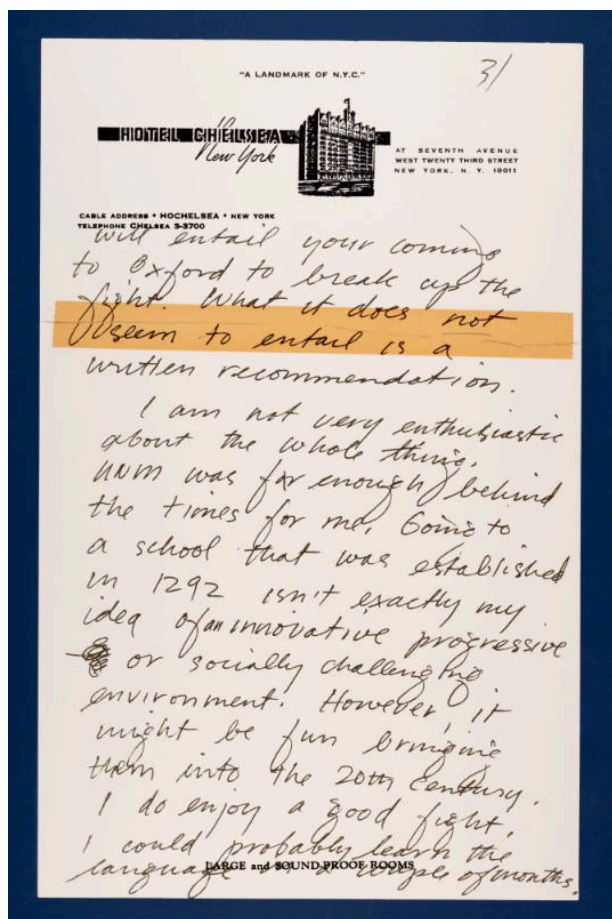 "A LANDMARK OF N.Y.C."
3/
HOTEL CHELSEA
New York
AT SEVENTH AVENUE
WEST TWENTY THIRD STREET
NEW YORK, N. Y. 10011
CABLE ADDRESS • HOCHELSEA • NEW YORK
TELEPHONE CHELSEA 3-3700
will entail your coming
to Oxford to break up the
fight. What it does not
seem to entail is a
written recommendation.
I am not very enthusiastic
about the whole thing.
UNM was far enough behind
the times for me. Going to
a school that was established
in 1292 isn't exactly my
idea of an innovative progressive
or socially challenging
environment. However, it
might be fun bringing
them into the 20th Century.
I do enjoy a good fight.
I could probably learn the
language in a couple of months.
LARGE and SOUND-PROOF ROOMS